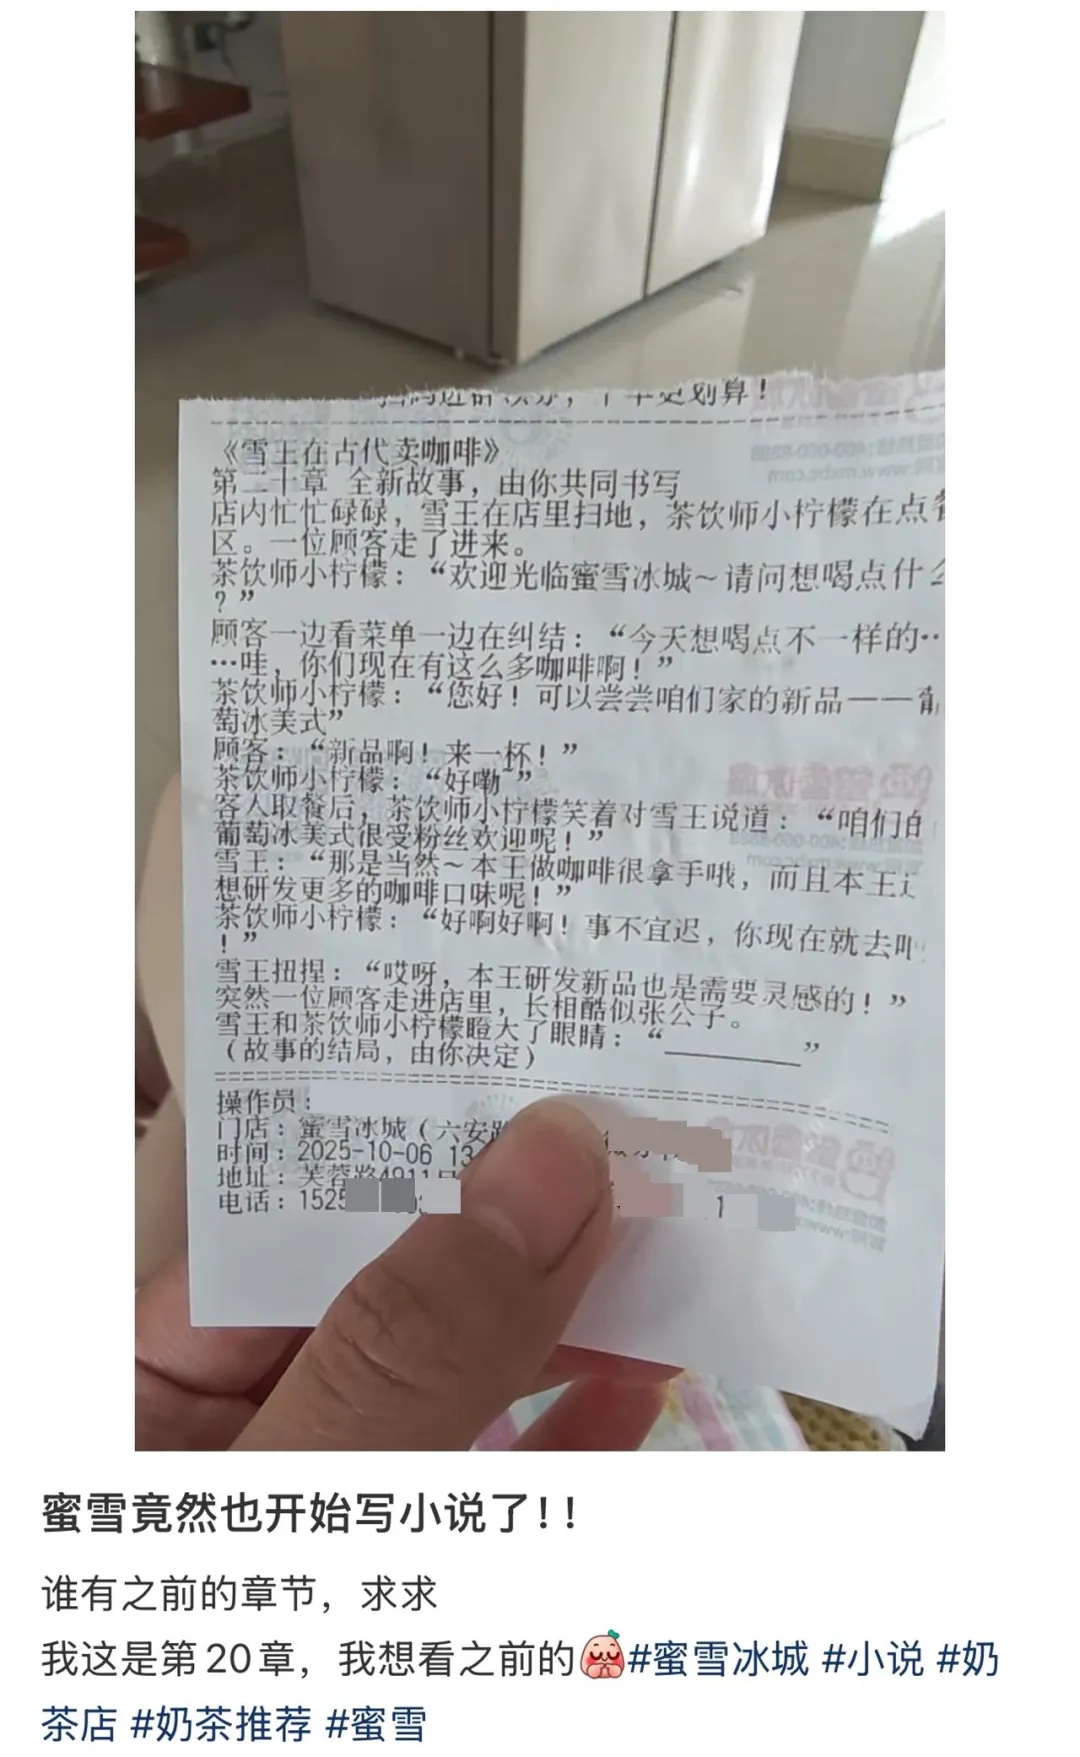 更划算！
《雪王在古代卖咖啡》
第二十章 全新故事，由你共同书写
店内忙忙碌碌，雪王在店里扫地，茶饮师小柠檬在点
区。一位顾客走了进来。
茶饮师小柠檬：“欢迎光临蜜雪冰城～请问想喝点什
？”
顾客一边看菜单一边在纠结：“今天想喝点不一样的…
…哇，你们现在有这么多咖啡啊！”
茶饮师小柠檬：“您好！可以尝尝咱们家的新品——
萄冰美式”
顾客：“新品啊！来一杯！”
茶饮师小柠檬：“好嘞~”
客人取餐后，茶饮师小柠檬笑着对雪王说道：“咱们的
葡萄冰美式很受粉丝欢迎呢！”
雪王：“那是当然～本王做咖啡很拿手哦，而且本王
想研发更多的咖啡口味呢！”
茶饮师小柠檬：“好啊好啊！事不宜迟，你现在就去
！”
雪王扭捏：“哎呀，本王研发新品也是需要灵感的！”
突然一位顾客走进店里，长相酷似张公子。
雪王和茶饮师小柠檬瞪大了眼睛：“________”
（故事的结局，由你决定）
操作员：
门店：蜜雪冰城（六安
时间：2025-10-06 13
地址：芙蓉路4911
电话：1525
1
蜜雪竟然也开始写小说了！！
谁有之前的章节，求求
我这是第20章，我想看之前的#蜜雪冰城 #小说 #奶
茶店 #奶茶推荐 #蜜雪